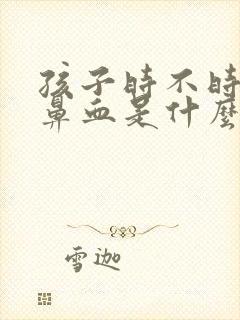 孩子时不时
鼻血是什麼
雪迦